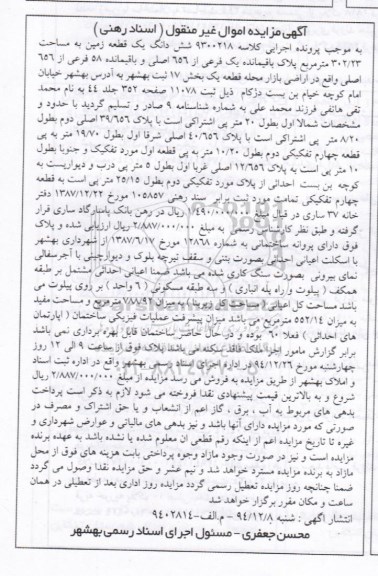 آگهی مزایده اموال غیر منقول ( اسناد رهنی )
به موجب پرونده اجرایی کلاسه ۹۳۰۰۲۱۸ شش دانگ یک قطعه زمین به مساحت
۳۰۲/۲۳ مترمربع پلاک باقیمانده یک فرعی از ۶۵۶ اصلی و باقیمانده ۵۸ فرعی از ۶۵۶
اصلی واقع در اراضی بازار محله قطعه یک بخش ۱۷ ثبت بهشهر به آدرس بهشهر خیابان
امام کوچه خیام بن بست دژکام ذیل ثبت ۱۱۰۷۸ صفحه ۳۵۲ جلد ۴۴ به نام محمد
تقی هاتفی فرزند محمد علی به شماره شناسنامه ۹ صادر و تسلیم گردید با حدود و
مشخصات شمالا اول بطول ۲۰ متر پی اشتراکی است با پلاک ۳۹/۶۵۶ اصلی دوم بطول
۸/۲۰ متر پی اشتراکی است با پلاک ۴۰/۶۵۶ اصلی شرقا اول بطول ۱۹/۷۰ متر به پی
قطعه چهارم تفکیکی دوم بطول ۱۰/۲۰ متر به پی قطعه اول مورد تفکیک و جنوبا بطول
۱۰ متر پی است به پلاک ۱۲/۶۵۶ اصلی غربا اول بطول ۵ متر پی درب و دیواریست به
کوچه بن بست احداثی از پلاک مورد تفکیکی دوم بطول ۲۵/۱۵ متر پی است به قطعه
چهارم تفکیکی تمامت مورد ثبت برابر سند رهنی ۱۰۵۸۵۷ مورخ ۱۳۸۷/۱۲/۲۲ دفتر
خانه ۳۷ ساری در قبال مبلغ ریال در رهن بانک پاسارگاد ساری قرار
گرفته و طبق نظر کارشناس رسمی به مبلغ ۲/۸۸۷/۰۰۰/۰۰۰ ریال ارزیابی شده و پلاک
فوق دارای پروانه ساختمانی به شماره ۱۲۸۶۸ مورخ ۱۳۸۷/۶/۱۷ از شهرداری بهشهر
با اسکلت اعیانی احداثی بصورت بتنی و سقف تیرچه بلوک و دیوارچینی با آجرسفالی
نمای بیرونی بصورت سنگ کاری شده می باشد ضمنا اعیانی احداثی مشتمل بر طبقه
همکف ( پیلوت و راه پله انباری ) و سه طبقه مسکونی ( ۶ واحد ) بر روی پیلوت می
باشد مساحت کل اعیانی ( مساحت کل زیربنا ) به میزان ۷۸۸/۹۲ مترمربع و مساحت مفید
به میزان ۵۵۲/۱۴ مترمربع می باشد میزان پیشرفت عملیات فیزیکی ساختمان ( اپارتمان
های احداثی ) فعلا ۶۰ بوده و در حال حاضر ساختمان قابل بهره برداری نمی باشد
برابر گزارش مامور اجرا ملک فاقد سکنه می باشد پلاک فوق از ساعت ۹ الی ۱۲ روز
چهارشنبه مورخ ۹۴/۱۲/۲۶ در اداره اجرای اسناد رسمی بهشهر واقع در اداره ثبت اسناد
و املاک بهشهر از طریق مزایده به فروش می رسد مزایده از مبلغ ۲/۸۸۷/۰۰۰/۰۰۰ ریال
شروع و به بالاترین قیمت پیشنهادی نقدا فروخته می شود لازم به ذکر است پرداخت
بدهی های مربوط به آب ، برق ، گاز اعم از انشعاب و یا حق اشتراک و مصرف در
صورتی که مورد مزایده دارای آنها باشد و نیز بدهی های مالیاتی و عوارض شهرداری و
غیره تا تاریخ مزایده اعم از اینکه رقم قطعی ان معلوم شده یا نشده باشد به عهده برنده
مزایده است و نیز در صورت وجود مازاد وجوه پرداختی بابت هزینه های فوق از محل
مازاد به برنده مزایده مسترد خواهد شد و نیم عشر و حق مزایده نقدا وصول می گردد
ضمنا چنانچه روز مزایده تعطیل رسمی گردد مزایده روز اداری بعد از تعطیلی در همان
ساعت و مکان مقرر برگزار خواهد شد
انتشار آگهی : شنبه ۹۴/۱۲/۸ – م.الف-۹۴۰۲۸۱۴
محسن جعفری – مسئول اجرای اسناد رسمی بهشهر